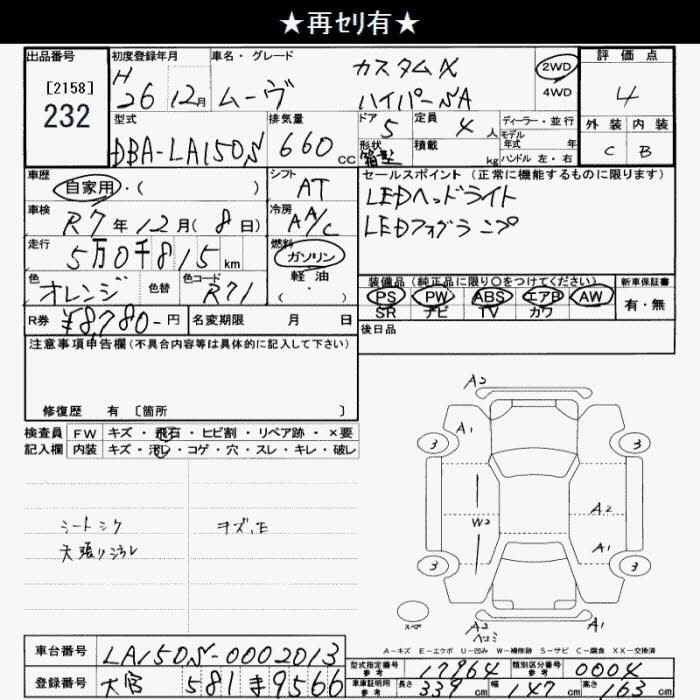 ★再ｾﾘ有★
出品番号
[2158]
232
初度登録年月
H
26 12月
車名・グレード
ムーヴ
カスタムX
ハイパーSA
2WD
4WD
評価点
4
外装 内装
C B
型式
DBA-LA150S
排気量
660 cc
ドア 5
形状 箱型
定員 4 人
積載 kg
ディーラー・並行
モデル
年式 年
ハンドル 左・右
車歴
自家用・( )
シフト
AT
車検
R7年12月(8日)
冷房
AA/C
走行
5万0千815km
燃料
ガソリン
軽油
( ・ )
色
オレンジ
色替
色コード
R71
R券 ¥8,780-円
名変期限 月 日
セールスポイント(正常に機能するものに限ります)
LEDヘッドライト
LEDフォグランプ
装備品(純正品に限り○をつけてください)
PS PW ABS エアB AW
SR ナビ TV カワ
新車保証書
有・無
後日品
注意事項申告欄(不具合内容等は具体的に記入して下さい)
修復歴 有 〔箇所 〕
検査員
記入欄
FW キズ・飛石・ヒビ割・リペア跡・×要
内装 キズ・汚レ・コゲ・穴・スレ・キレ・破レ
シートシワ
キズ、E
天張りジワレ
A2
A1
3 3
W2
A2
A1
3 3
スペア
A2
ヘコミ
A1
A-キズ E-エクボ U-凹み W-補修跡 S-サビ C-腐食 XX-交換済
車台番号 LA150S-0002013
登録番号 大宮 581 ま 9566
型式指定番号 参考 17964
類別区分番号 参考 0004
車庫証明用 参考
長さ 339 cm 幅 147 cm 高さ 163 cm